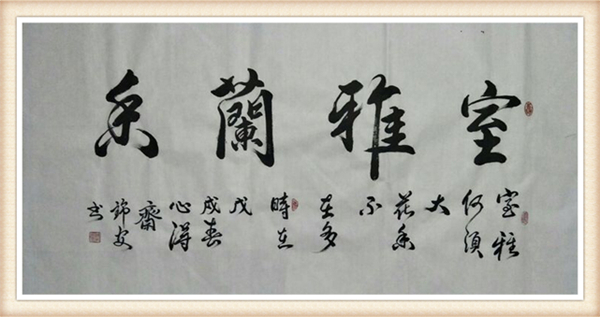 室雅蘭香
室雅
何須
大
花香
不
在多
時在
戊
戌春
心得
齋
安
书